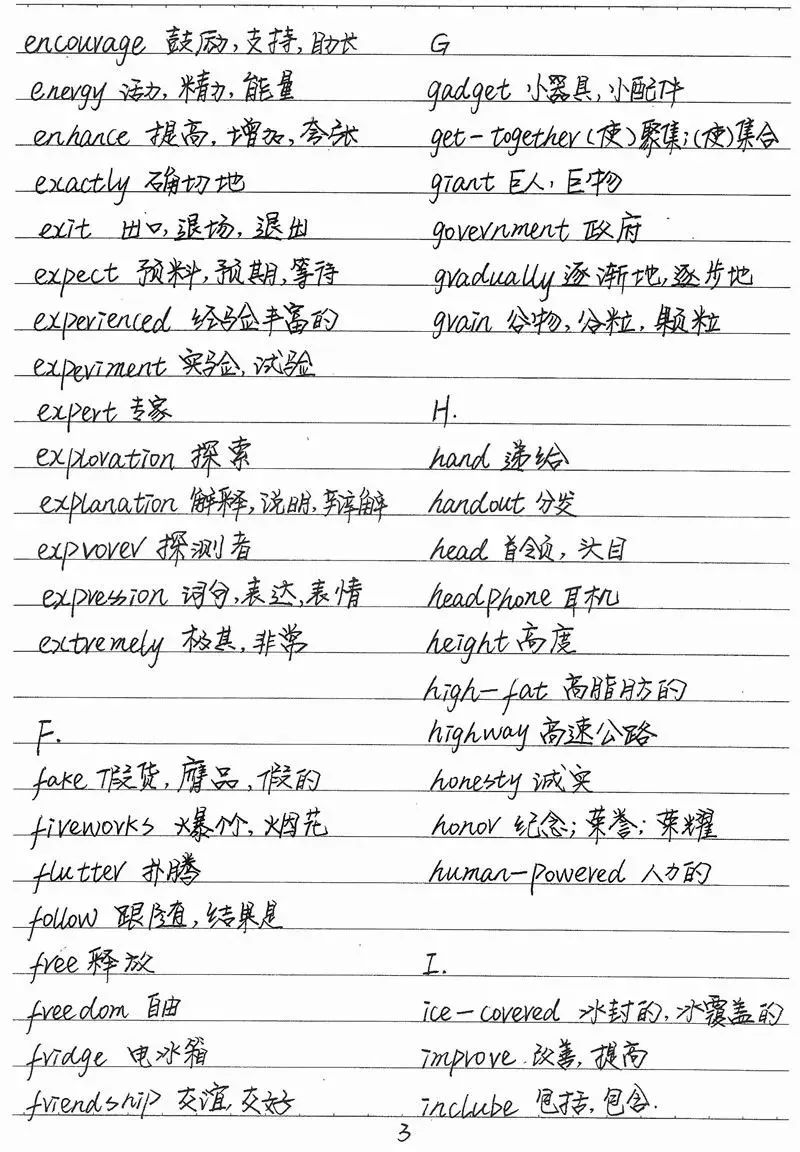 encourage 鼓励,支持,助长
energy 活力,精力,能量
enhance 提高,增加,夸张
exactly 确切地
exit 出口,退场,退出
expect 预料,预期,等待
experienced 经验丰富的
experiment 实验,试验
expert 专家
exploration 探索
explanation 解释,说明,辩解
exprorer 探测者
expression 词句,表达,表情
extremely 极其,非常
F.
fake 假货,赝品,假的
fireworks 爆竹,烟花
flutter 扑腾
follow 跟随,结果是
free 释放
freedom 自由
fridge 电冰箱
friendship 交谊,交好
G
gadget 小器具,小配件
get-together (使)聚集;(使)集合
giant 巨人,巨物
government 政府
gradually 逐渐地,逐步地
grain 谷物,谷粒,颗粒
H.
hand 递给
handout 分发
head 首领,头目
headphone 耳机
height 高度
high-fat 高脂肪的
highway 高速公路
honesty 诚实
honor 纪念;荣誉;荣耀
human-powered 人力的
I.
ice-covered 冰封的,冰覆盖的
improve 改善,提高
inclube 包括,包含.
3